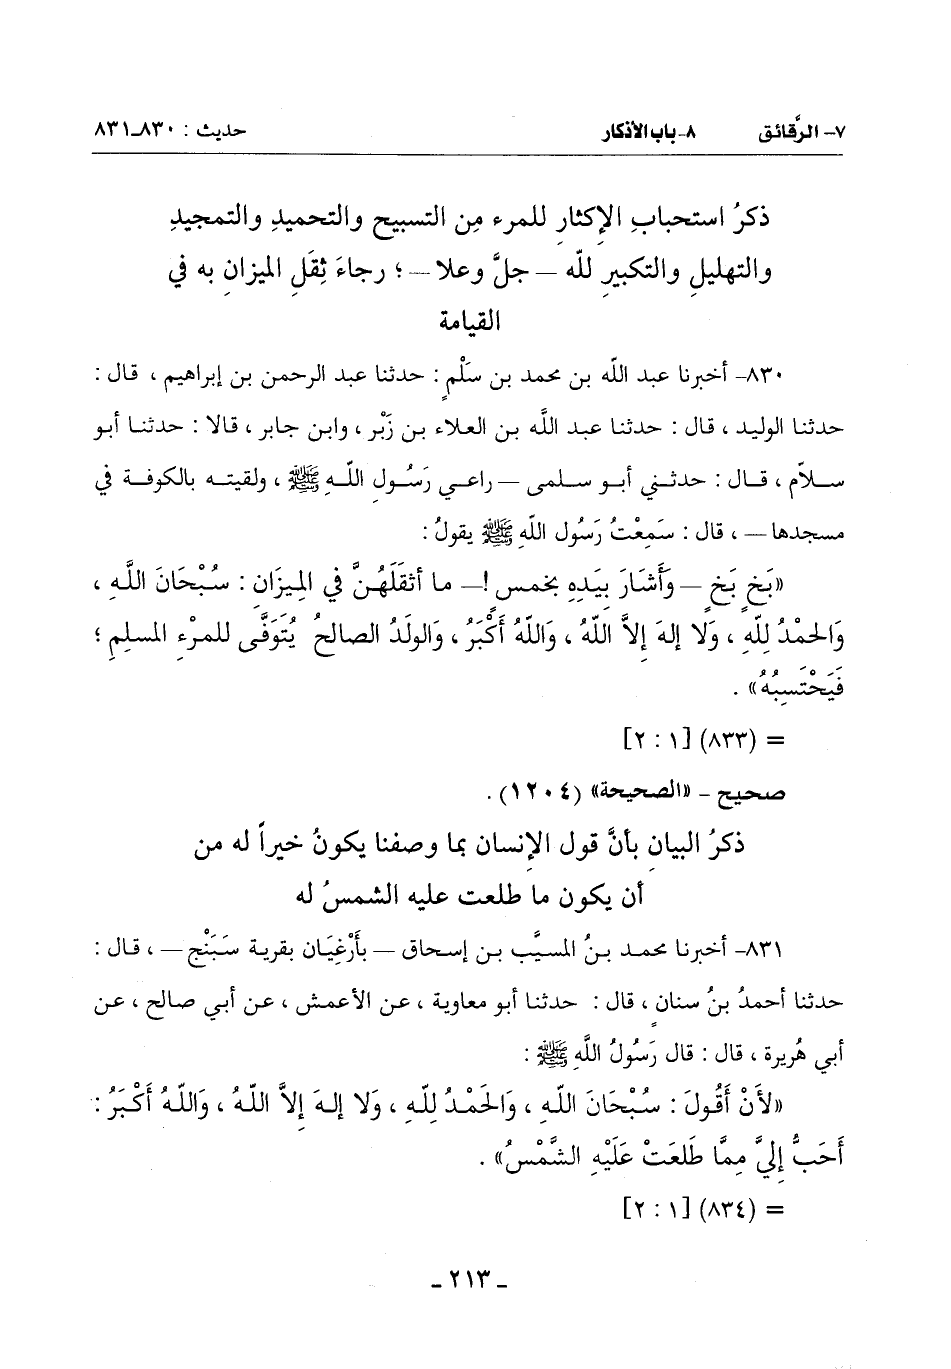 ٧- الرَّقائق ٨- باب الأذكار حديث : ٨٣٠ـ٨٣١
ذكرُ استحبابِ الإكثارِ للمرء مِن التسبيح والتحميدِ والتمجيدِ
والتهليلِ والتكبيرِ للّه — جلَّ وعلا — ؛ رجاءَ ثِقَلِ الميزانِ به في
القيامة
٨٣٠- أخبرنا عبد اللّه بن محمد بن سَلْمٍ : حدثنا عبد الرحمن بن إبراهيم ، قال :
حدثنا الوليد ، قال : حدثنا عبد اللَّه بن العلاء بن زَبْر ، وابن جابر ، قالا : حدثنا أبو
سلاّم ، قال : حدثني أبو سلمى — راعي رَسُولِ اللَّهِ ﷺ ، ولقيته بالكوفة في
مسجدها — ، قال : سَمِعْتُ رَسُول اللَّهِ ﷺ يقولُ :
«بَخٍ بَخٍ — وَأَشَارَ بِيَدِهِ بخمسٍ !— ما أثقَلَهُنَّ في المِيزَانِ : سُبْحَانَ اللَّهِ ،
وَالحمْدُ لِلَّهِ ، وَلا إلهَ إلاَّ اللَّهُ ، وَاللَّهُ أَكْبَرُ ، وَالولَدُ الصالحُ يُتَوَفَّى للمرْءِ المسلِمِ ؛
فَيَحْتَسِبُهُ» .
= (٨٣٣) [١ : ٢]
صحيح - «الصحيحة» (١٢٠٤) .
ذكرُ البيانِ بأنَّ قول الإنسانِ بما وصفنا يكونُ خيراً له من
أن يكون ما طلعت عليه الشمسُ له
٨٣١- أخبرنا محمد بنُ المسيَّب بن إسحاق — بأَرْغِيَان بقرية سَبَنْج — ، قال :
حدثنا أحمدُ بنُ سنانٍ ، قال : حدثنا أبو معاوية ، عن الأعمش ، عن أبي صالح ، عن
أبي هُريرة ، قال : قال رَسُولُ اللَّهِ ﷺ :
«لأَنْ أَقُولَ : سُبْحَانَ اللَّهِ ، وَالحَمْدُ لِلَّهِ ، وَلا إلهَ إلاَّ اللَّهُ ، وَاللَّهُ أَكْبَرُ :
أَحَبُّ إليَّ مِمَّا طَلَعَتْ عَلَيْهِ الشَّمْسُ» .
= (٨٣٤) [١ : ٢]
ـ ٢١٣ ـ